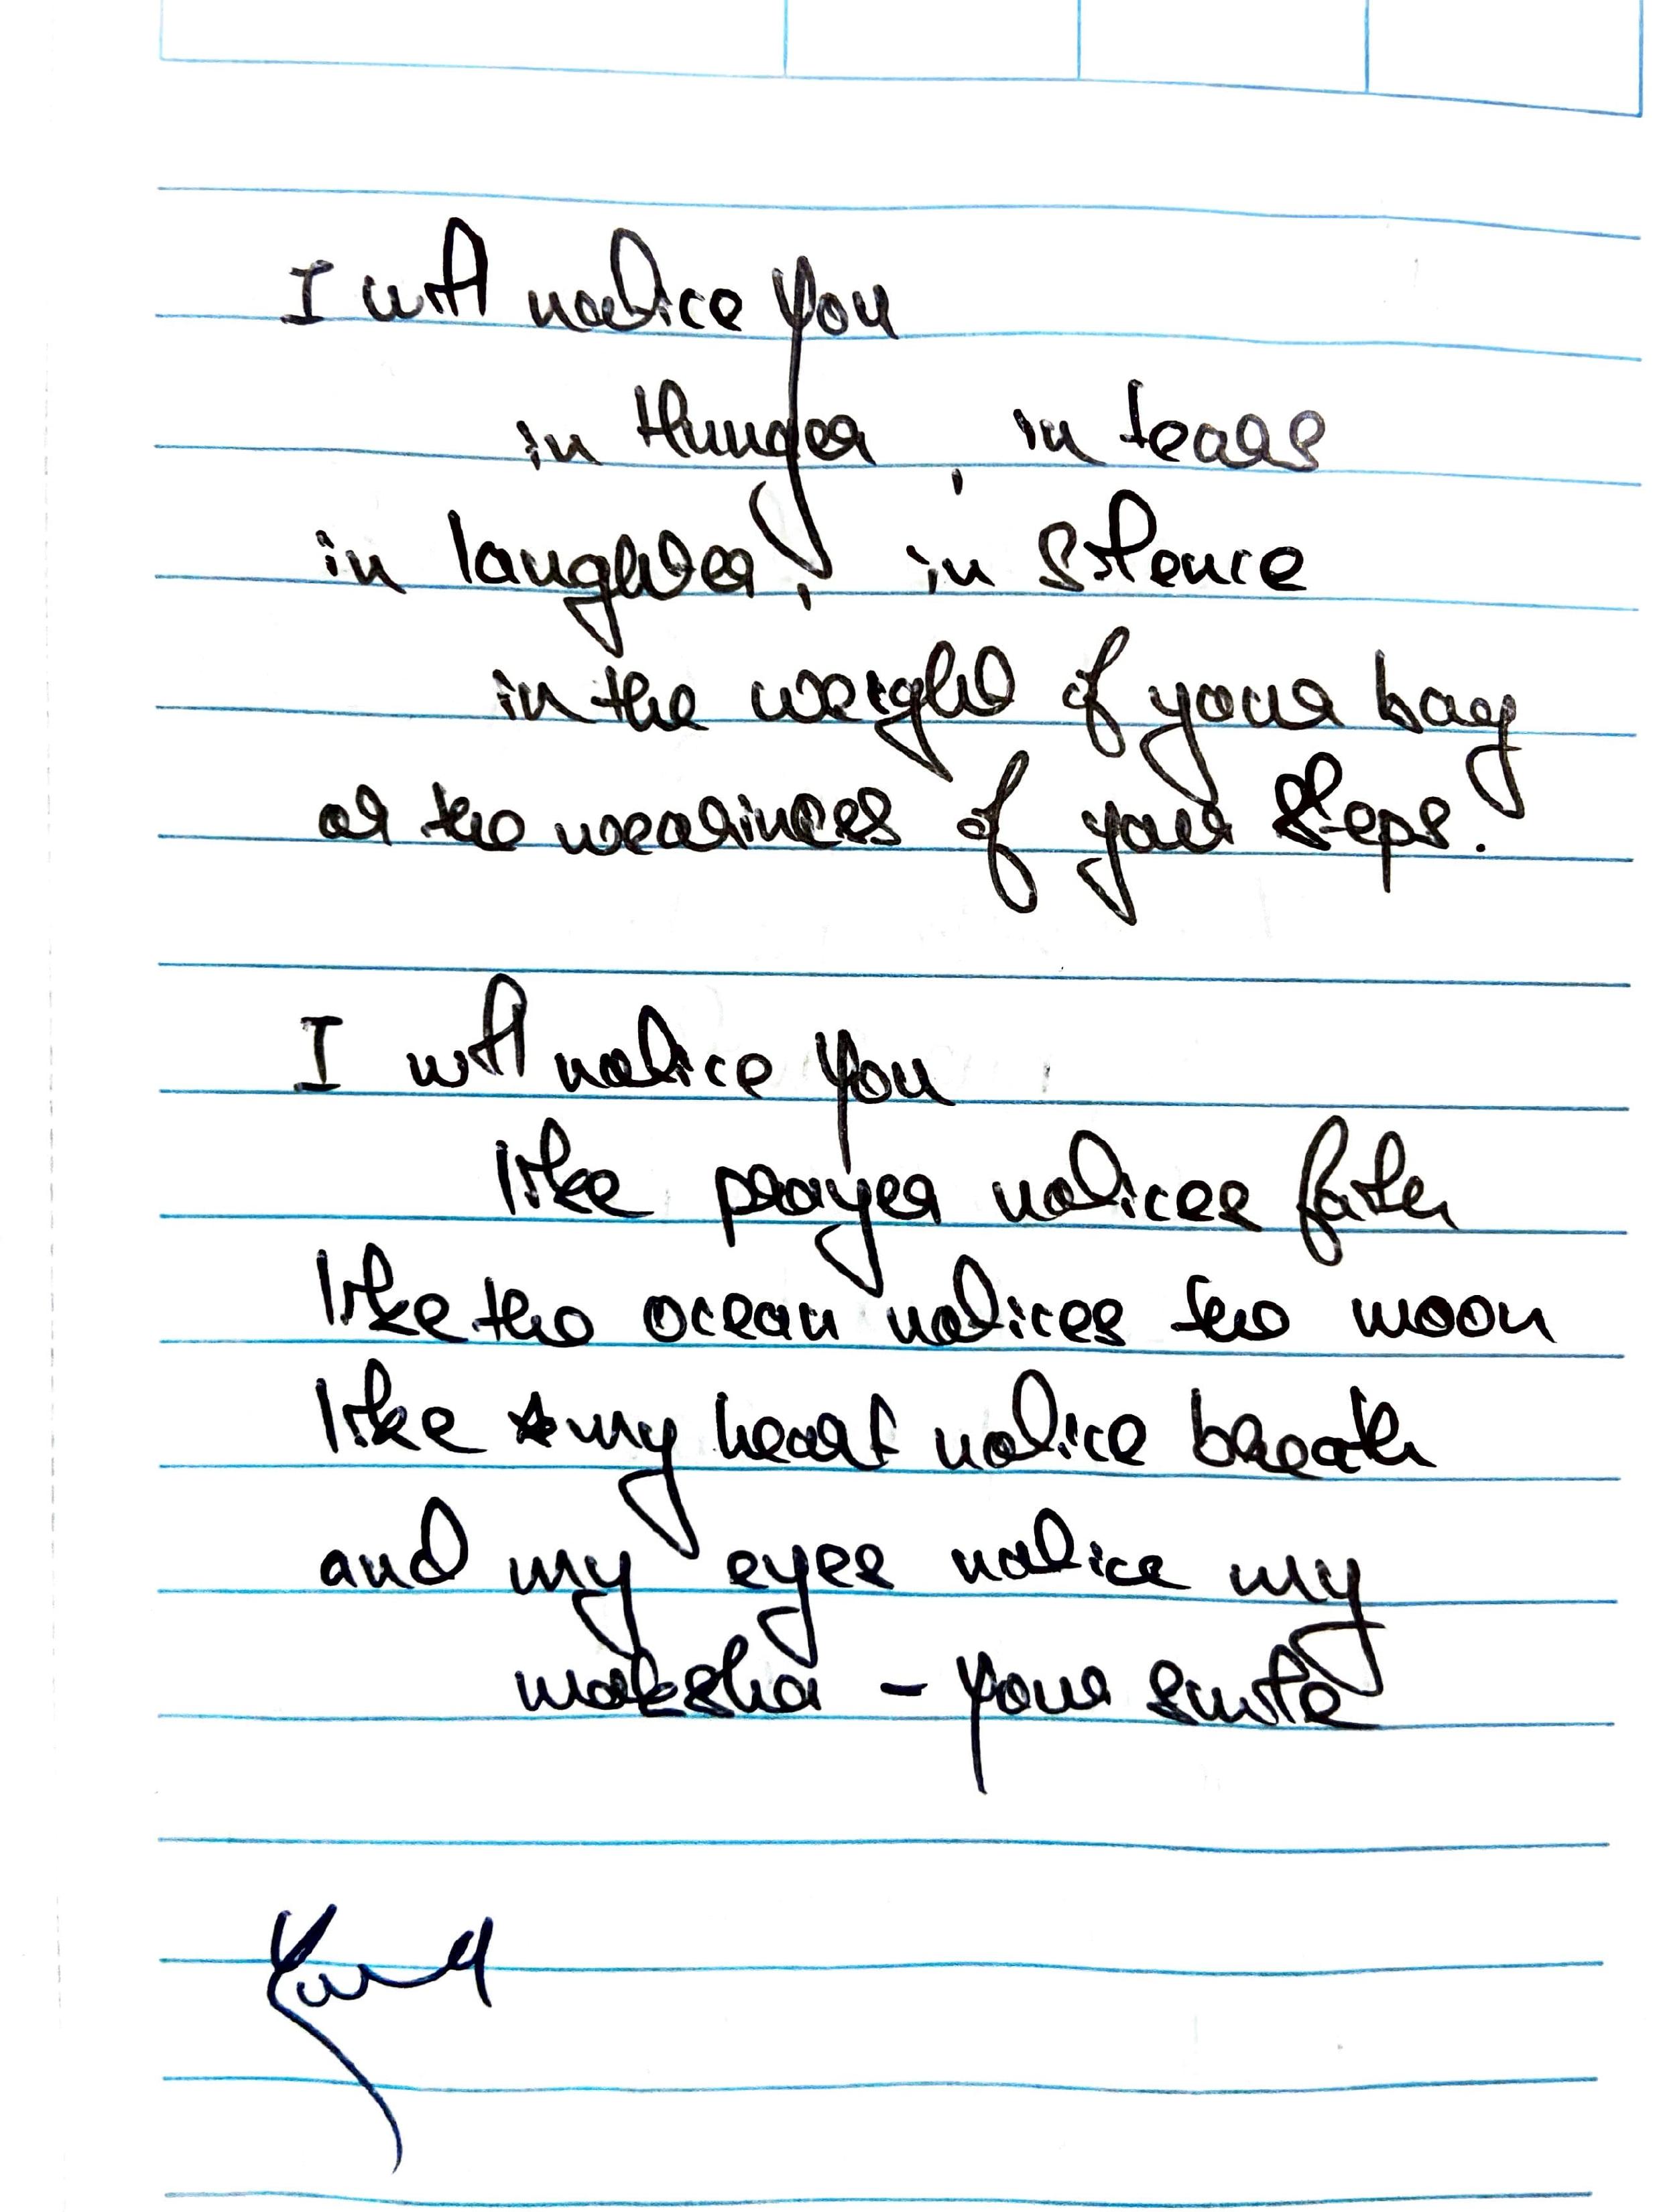 I will notice you
in Hunger, in tears
in laughter, in Silence
in the weight of your bag
or the weariness of your steps.
I will notice you
like prayer notices faith
like the ocean notices the moon
like my heart notice breath
and my eyes notice my
moksha - your smile